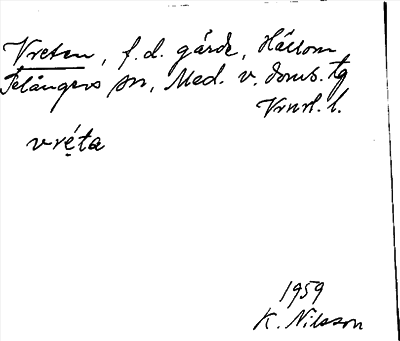 Vreten, f.d. gärde, Hällom
Selångers sn, Med. v. doms. tg
Vrnrl. l.
vrẹ́ta
1959
K. Nilsson